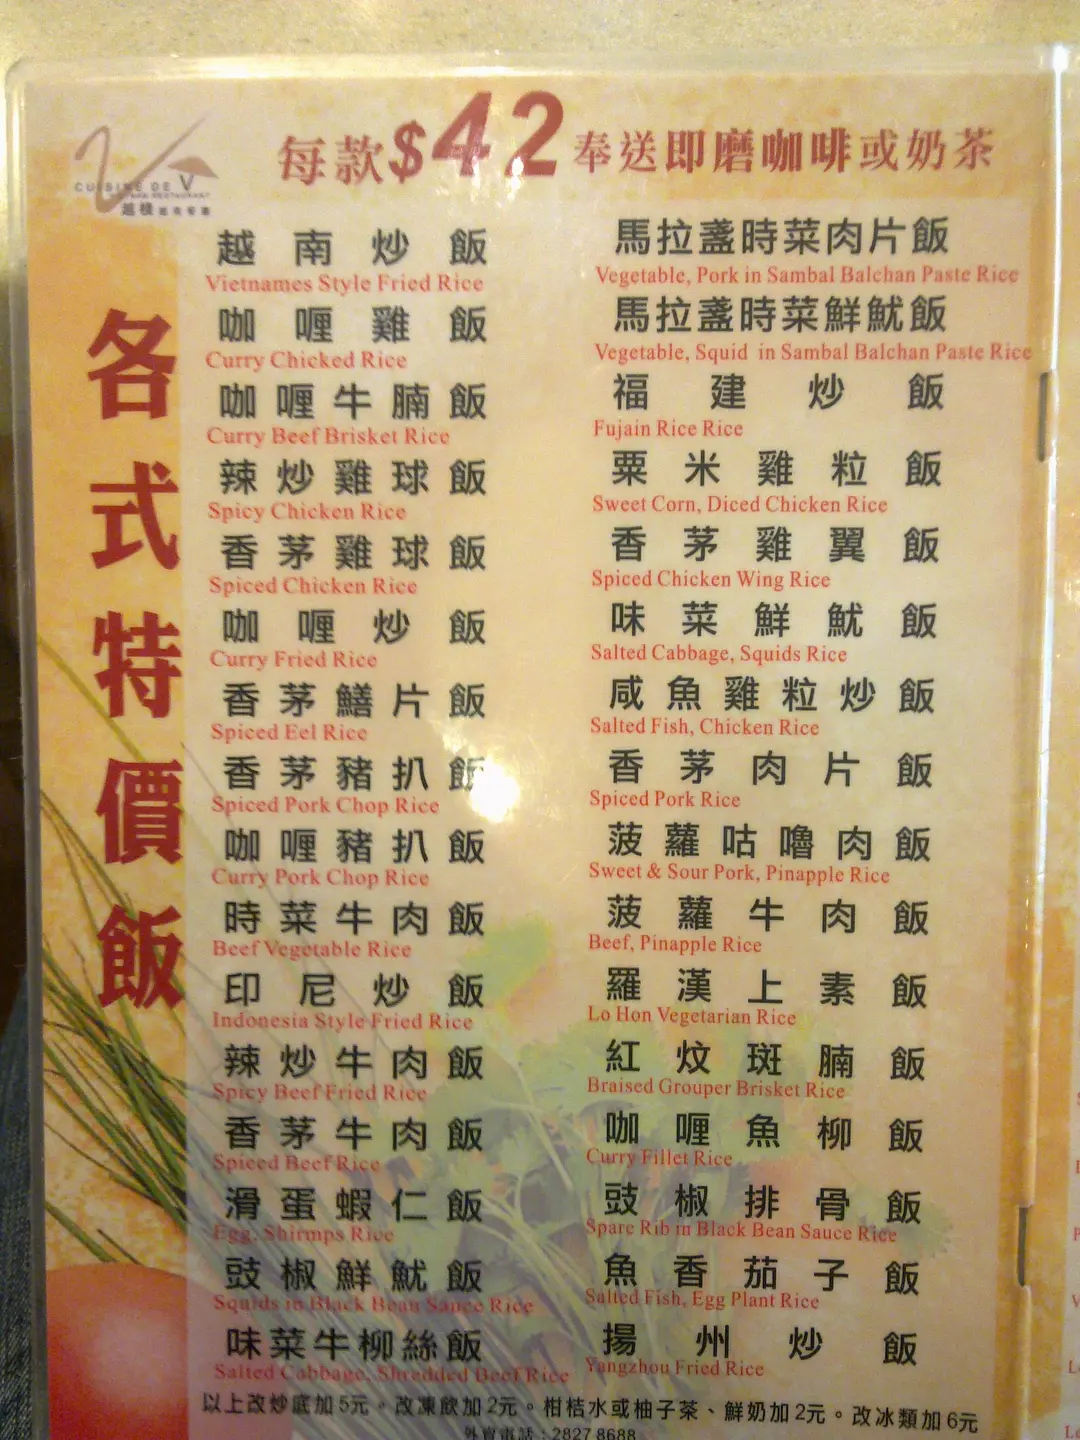 每款$42奉送即磨咖啡或奶茶
CUISINE DE V
越棧越南餐廳
各式特價飯
越南炒飯
Vietnames Style Fried Rice
咖喱雞飯
Curry Chicked Rice
咖喱牛腩飯
Curry Beef Brisket Rice
辣炒雞球飯
Spicy Chicken Rice
香茅雞球飯
Spiced Chicken Rice
咖喱炒飯
Curry Fried Rice
香茅鱔片飯
Spiced Eel Rice
香茅豬扒飯
Spiced Pork Chop Rice
咖喱豬扒飯
Curry Pork Chop Rice
時菜牛肉飯
Beef Vegetable Rice
印尼炒飯
Indonesia Style Fried Rice
辣炒牛肉飯
Spicy Beef Fried Rice
香茅牛肉飯
Spiced Beef Rice
滑蛋蝦仁飯
Egg, Shirmps Rice
豉椒鮮魷飯
Squids in Black Bean Sauce Rice
味菜牛柳絲飯
Salted Cabbage, Shredded Beef Rice
馬拉盞時菜肉片飯
Vegetable, Pork in Sambal Balchan Paste Rice
馬拉盞時菜鮮魷飯
Vegetable, Squid in Sambal Balchan Paste Rice
福建炒飯
Fujain Rice Rice
粟米雞粒飯
Sweet Corn, Diced Chicken Rice
香茅雞翼飯
Spiced Chicken Wing Rice
味菜鮮魷飯
Salted Cabbage, Squids Rice
咸魚雞粒炒飯
Salted Fish, Chicken Rice
香茅肉片飯
Spiced Pork Rice
菠蘿咕嚕肉飯
Sweet & Sour Pork, Pinapple Rice
菠蘿牛肉飯
Beef, Pinapple Rice
羅漢上素飯
Lo Hon Vegetarian Rice
紅炆斑腩飯
Braised Grouper Brisket Rice
咖喱魚柳飯
Curry Fillet Rice
豉椒排骨飯
Spare Rib in Black Bean Sauce Rice
魚香茄子飯
Salted Fish, Egg Plant Rice
揚州炒飯
Yangzhou Fried Rice
以上改炒底加5元。改凍飲加2元。柑桔水或柚子茶、鮮奶加2元。改冰類加6元
外賣電話：2827 8688